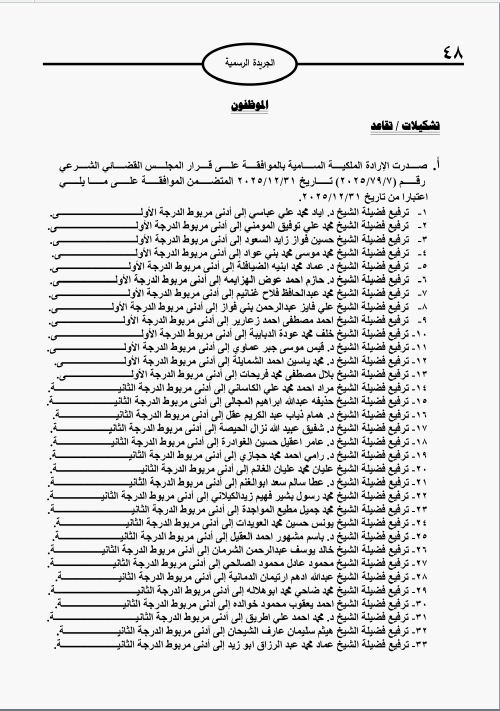 ٤٨
الجريدة الرسمية
الموظفون
تشكيلات / تقاعد
أ. صدرت الإرادة الملكية السامية بالموافقة على قرار المجلس القضائي الشرعي
رقم (٢٠٢٥/٧٩/٧) تاريخ ٢٠٢٥/١٢/٣١ المتضمن الموافقة على ما يلي
اعتبارا من تاريخ ٢٠٢٥/١٢/٣١.
١- ترفيع فضيلة الشيخ د. اياد محمد علي عباسي إلى أدنى مربوط الدرجة الأولى.
٢- ترفيع فضيلة الشيخ محمد علي توفيق المومني إلى أدنى مربوط الدرجة الأولى.
٣- ترفيع فضيلة الشيخ حسين فواز زايد السعود إلى أدنى مربوط الدرجة الأولى.
٤- ترفيع فضيلة الشيخ محمد موسى محمد بني عواد إلى أدنى مربوط الدرجة الأولى.
٥- ترفيع فضيلة الشيخ د. عماد محمد ابنيه الضيافلة إلى أدنى مربوط الدرجة الأولى.
٦- ترفيع فضيلة الشيخ د. حازم احمد عوض الهزايمه إلى أدنى مربوط الدرجة الأولى.
٧- ترفيع فضيلة الشيخ محمد عبدالحافظ فلاح غنانيم إلى أدنى مربوط الدرجة الأولى.
٨- ترفيع فضيلة الشيخ علي فايز عبدالرحمن بني فواز إلى أدنى مربوط الدرجة الأولى.
٩- ترفيع فضيلة الشيخ احمد مصطفى احمد زعارير إلى أدنى مربوط الدرجة الأولى.
١٠- ترفيع فضيلة الشيخ خلف محمد عودة الدبايبة إلى أدنى مربوط الدرجة الأولى.
١١- ترفيع فضيلة الشيخ د. قيس موسى جبر عصفوي إلى أدنى مربوط الدرجة الأولى.
١٢- ترفيع فضيلة الشيخ د. محمد ياسين احمد الشمايلة إلى أدنى مربوط الدرجة الأولى.
١٣- ترفيع فضيلة الشيخ بلال مصطفى محمد فريحات إلى أدنى مربوط الدرجة الأولى.
١٤- ترفيع فضيلة الشيخ مراد احمد محمد علي الكاساني إلى أدنى مربوط الدرجة الثانية.
١٥- ترفيع فضيلة الشيخ حذيفه عبدالله ابراهيم المجالي إلى أدنى مربوط الدرجة الثانية.
١٦- ترفيع فضيلة الشيخ د. همام ذياب عبد الكريم عقل إلى أدنى مربوط الدرجة الثانية.
١٧- ترفيع فضيلة الشيخ د. شفيق عبيد الله نزال الحيصة إلى أدنى مربوط الدرجة الثانية.
١٨- ترفيع فضيلة الشيخ د. عامر اعقيل حسين الغوادرة إلى أدنى مربوط الدرجة الثانية.
١٩- ترفيع فضيلة الشيخ د. رامي احمد محمد حجازي إلى أدنى مربوط الدرجة الثانية.
٢٠- ترفيع فضيلة الشيخ عليان محمد عليان الغانم إلى أدنى مربوط الدرجة الثانية.
٢١- ترفيع فضيلة الشيخ د. عطا سالم سعد ابوالغنم إلى أدنى مربوط الدرجة الثانية.
٢٢- ترفيع فضيلة الشيخ محمد رسول بشير فهيم زيدالكيلاني إلى أدنى مربوط الدرجة الثانية.
٢٣- ترفيع فضيلة الشيخ محمد جميل مطيع المواجدة إلى أدنى مربوط الدرجة الثانية.
٢٤- ترفيع فضيلة الشيخ يونس حسين محمد العويدات إلى أدنى مربوط الدرجة الثانية.
٢٥- ترفيع فضيلة الشيخ د. باسم مشهور احمد العقيل إلى أدنى مربوط الدرجة الثانية.
٢٦- ترفيع فضيلة الشيخ خالد يوسف عبدالرحمن الشرمان إلى أدنى مربوط الدرجة الثانية.
٢٧- ترفيع فضيلة الشيخ محمود عادل محمود الصالحي إلى أدنى مربوط الدرجة الثانية.
٢٨- ترفيع فضيلة الشيخ عبدالله ادهم ارتيمان الدمانية إلى أدنى مربوط الدرجة الثانية.
٢٩- ترفيع فضيلة الشيخ محمد ضاحي محمد ابوهلاله إلى أدنى مربوط الدرجة الثانية.
٣٠- ترفيع فضيلة الشيخ احمد يعقوب محمود خوالده إلى أدنى مربوط الدرجة الثانية.
٣١- ترفيع فضيلة الشيخ د. محمد احمد علي اطريق إلى أدنى مربوط الدرجة الثانية.
٣٢- ترفيع فضيلة الشيخ هيثم سليمان عارف الشيحان إلى أدنى مربوط الدرجة الثانية.
٣٣- ترفيع فضيلة الشيخ عماد محمد عبد الرزاق ابو زيد إلى أدنى مربوط الدرجة الثانية.